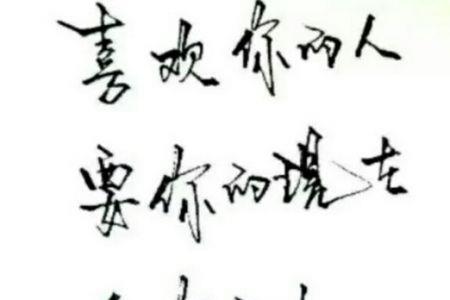 喜欢你的人
要你的现在